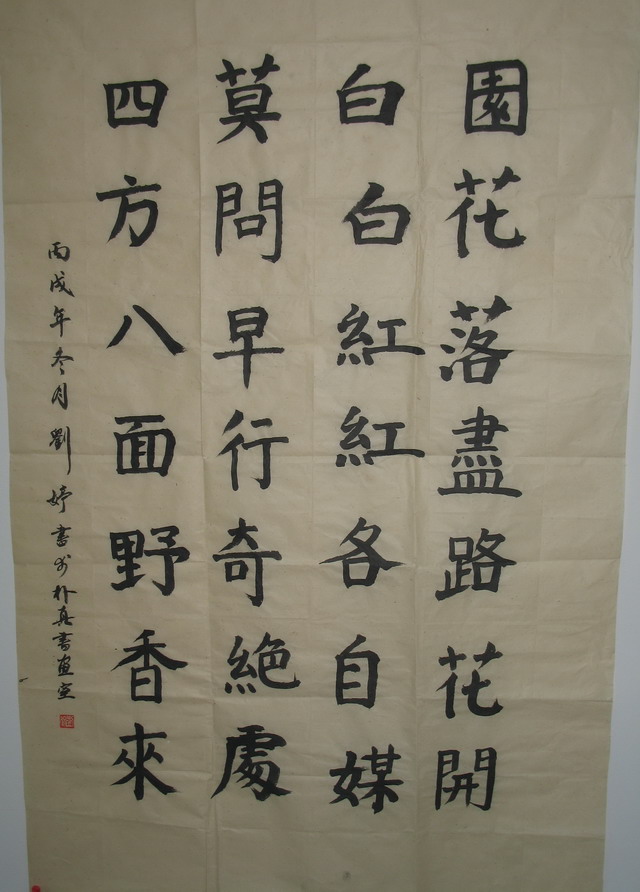 園花落盡路花開
白白紅紅各自媒
莫問早行奇絕處
四方八面野香來
丙戌年冬月劉婷書於朴真書画室